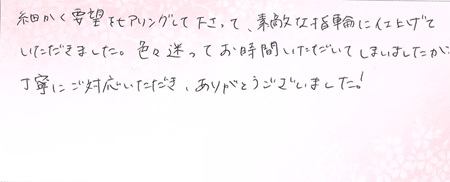 細かく要望をヒアリングして下さって、素敵な指輪に仕上げて
いただきました。色々迷ってお時間いただいてしまいましたが
丁寧にご対応いただき、ありがとうございました!